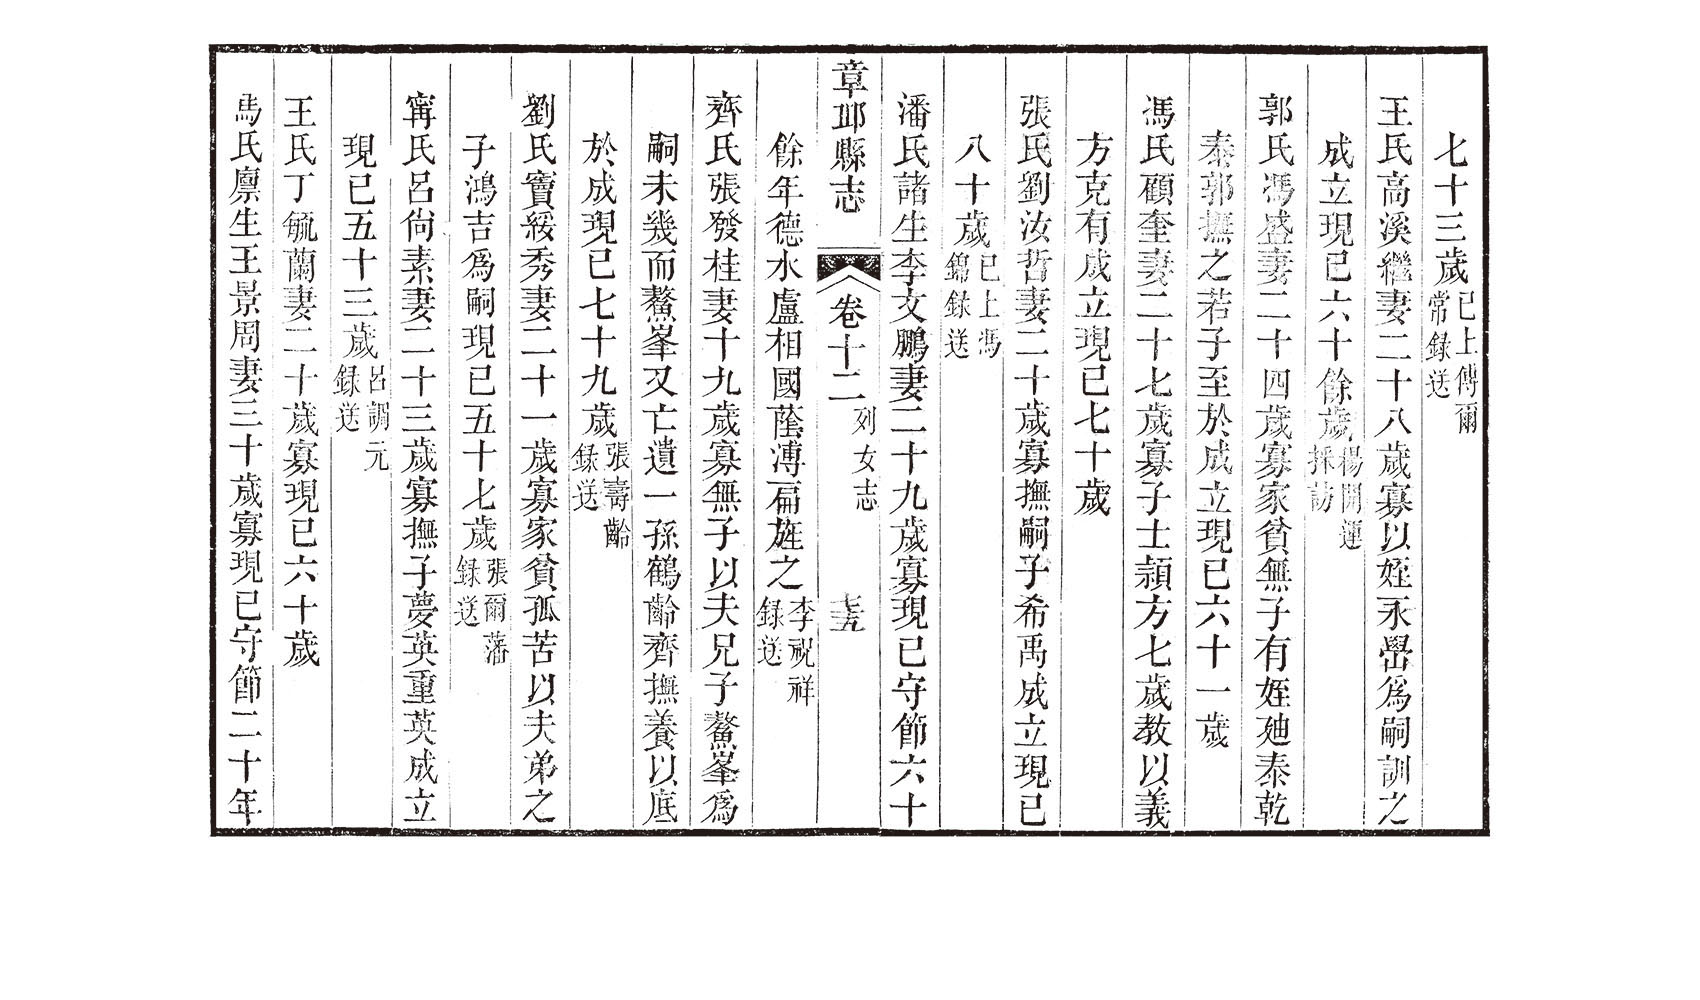 七十三歲已上傅爾常錄送
王氏高溪繼妻二十八歲寡以姪永礐為嗣訓之
成立現已六十餘歲楊開運採訪
郭氏馮盛妻二十四歲寡家貧無子有姪廸泰乾
泰郭撫之若子至於成立現已六十一歲
馮氏顧奎妻二十七歲寡子士頴方七歲教以義
方克有成立現已七十歲
張氏劉汝哲妻二十歲寡撫嗣子希禹成立現已
八十歲已上馮錦錄送
潘氏諸生李文鵬妻二十九歲寡現已守節六十
章邱縣志 卷十二 列女志 七五
餘年德水盧相國蔭溥扁旌之李祝祥錄送
齊氏張發桂妻十九歲寡無子以夫兄子鰲峯為
嗣未幾而鰲峯又亡遺一孫鶴齡齊撫養以底
於成現已七十九歲張壽齡錄送
劉氏竇綏秀妻二十一歲寡家貧孤苦以夫弟之
子鴻吉為嗣現已五十七歲張爾藩錄送
甯氏呂尙素妻二十三歲寡撫子夢英重英成立
現已五十三歲呂調元錄送
王氏丁毓蘭妻二十歲寡現已六十歲
馬氏廪生王景周妻三十歲寡現已守節二十年